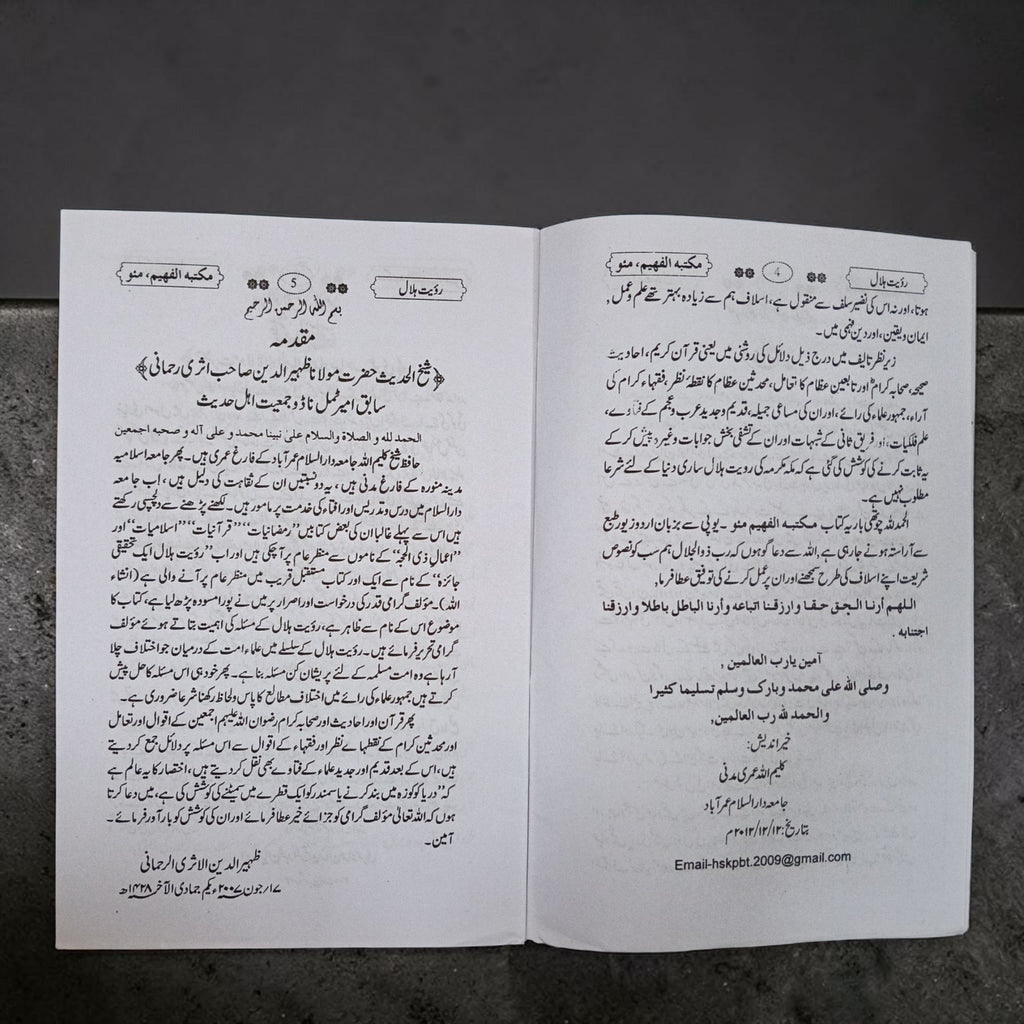 رؤیت ہلال
4
مکتبہ الفہیم، مئو
ہوتا، اور نہ اس کی نضیر سلف سے منقول ہے، اسلاف ہم سے زیادہ بہتر تھے علم و عمل ,
ایمان و یقین، اور دین فہمی میں۔
زیر نظر تالیف میں درج ذیل دلائل کی روشنی میں یعنی قرآن کریم، احادیث
صحیحہ، صحابہ کرامؓ اور تابعین عظام کا تعامل، محدثین عظام کا نقطۂ نظر، فقہاء کرام کی
آراء، جمہور علماء کی رائے، اور ان کی مساعی جمیلہ، قدیم و جدید عرب و عجم کے فتاوے،
علم فلکیات، اور فریق ثانی کے شبہات اور ان کے تشفی بخش جوابات وغیرہ پیش کر کے
یہ ثابت کرنے کی کوشش کی گئی ہے کہ مکہ مکرمہ کی رویت ہلال ساری دنیا کے لئے شرعا
مطلوب نہیں ہے۔
الحمد للہ چوتھی بار یہ کتاب مکتبہ الفہیم مئو ۔ یوپی سے بزبان اردو زیور طبع
سے آراستہ ہونے جارہی ہے، اللہ سے دعا گو ہوں کہ رب ذوالجلال ہم سب کو نصوص
شریعت اپنے اسلاف کی طرح سمجھنے اور ان پر عمل کرنے کی توفیق عطا فرما,
اللهم أرنا الحق حقا وارزقنا اتباعه وأرنا الباطل باطلا وارزقنا
اجتنابه .
آمین یارب العالمین ,
وصلی الله علی محمد وبارک وسلم تسلیما کثیرا
والحمد لله رب العالمین,
خیر اندیش:
کلیم اللہ عمری مدنی
جامعہ دارالسلام عمرآباد
بتاریخ: ۲۰۱۲/۱۲/۱۲م
Email-hskpbt.2009@gmail.com
رؤیت ہلال
5
مکتبہ الفہیم، مئو
بسم اللہ الرحمن الرحیم
مقدمہ
﴿شیخ الحدیث حضرت مولانا ظہیر الدین صاحب اثری رحمانی﴾
سابق امیر ٹمل ناڈو جمعیت اہل حدیث
الحمد لله و الصلاة والسلام علی نبینا محمد و علی آله و صحبه اجمعین
حافظ شیخ کلیم اللہ جامعہ دارالسلام عمرآباد کے فارغ عمری ہیں۔ پھر جامعہ اسلامیہ
مدینہ منورہ کے فارغ مدنی ہیں ، یہ دو نسبتیں ان کے ثقاہت کی دلیل ہیں ، اب جامعہ
دارالسلام میں درس و تدریس اور افتاء کی خدمت پر مامور ہیں۔ لکھنے پڑھنے سے دلچسپی رکھتے
ہیں اس سے پہلے غالبا ان کی بعض کتابیں "رمضانیات" "قرآنیات" "اسلامیات" اور
"اعمال ذی الحجہ" کے ناموں سے منظر عام پر آچکی ہیں اور اب "رؤیت ہلال ایک تحقیقی
جائزہ" کے نام سے ایک اور کتاب مستقبل قریب میں منظر عام پر آنے والی ہے (انشاء
اللہ)۔ مؤلف گرامی قدر کی درخواست اور اصرار پر میں نے پورا مسودہ پڑھ لیا ہے، کتاب کا
موضوع اس کے نام سے ظاہر ہے، رؤیت ہلال کے مسئلہ کی اہمیت بتاتے ہوئے مؤلف
گرامی تحریر فرماتے ہیں۔ رؤیت ہلال کے سلسلے میں علماء امت کے درمیان جو اختلاف چلا
آرہا ہے وہ امت مسلمہ کے لئے پریشان کن مسئلہ بنا ہے۔ پھر خود ہی اس مسئلہ کا حل پیش
کرتے ہیں: جمہور علماء کی رائے میں اختلاف مطالع کا پاس ولحاظ رکھنا شرعا ضروری ہے۔
پھر قرآن اور احادیث اور صحابہ کرام رضوان اللہ علیہم اجمعین کے اقوال اور تعامل
اور محدثین کرام کے نقطہائے نظر اور فقہاء کے اقوال سے اس مسئلہ پر دلائل جمع کردیتے
ہیں، اس کے بعد قدیم اور جدید علماء کے فتاوے بھی نقل کردیتے ہیں، اختصار کا یہ عالم ہے
کہ "دریا کو کوزہ میں بند کرنے یا سمندر کو ایک قطرے میں سمیٹنے کی کوشش کی ہے، میں دعا کرتا
ہوں کہ اللہ تعالیٰ مؤلف گرامی کو جزائے خیر عطا فرمائے اور ان کی کوشش کو بار آور فرمائے۔
آمین۔
ظہیر الدین الاثری الرحمانی
۱۷/جون ۲۰۰۷ء یکم جمادی الآخر ۱۴۲۸ھ